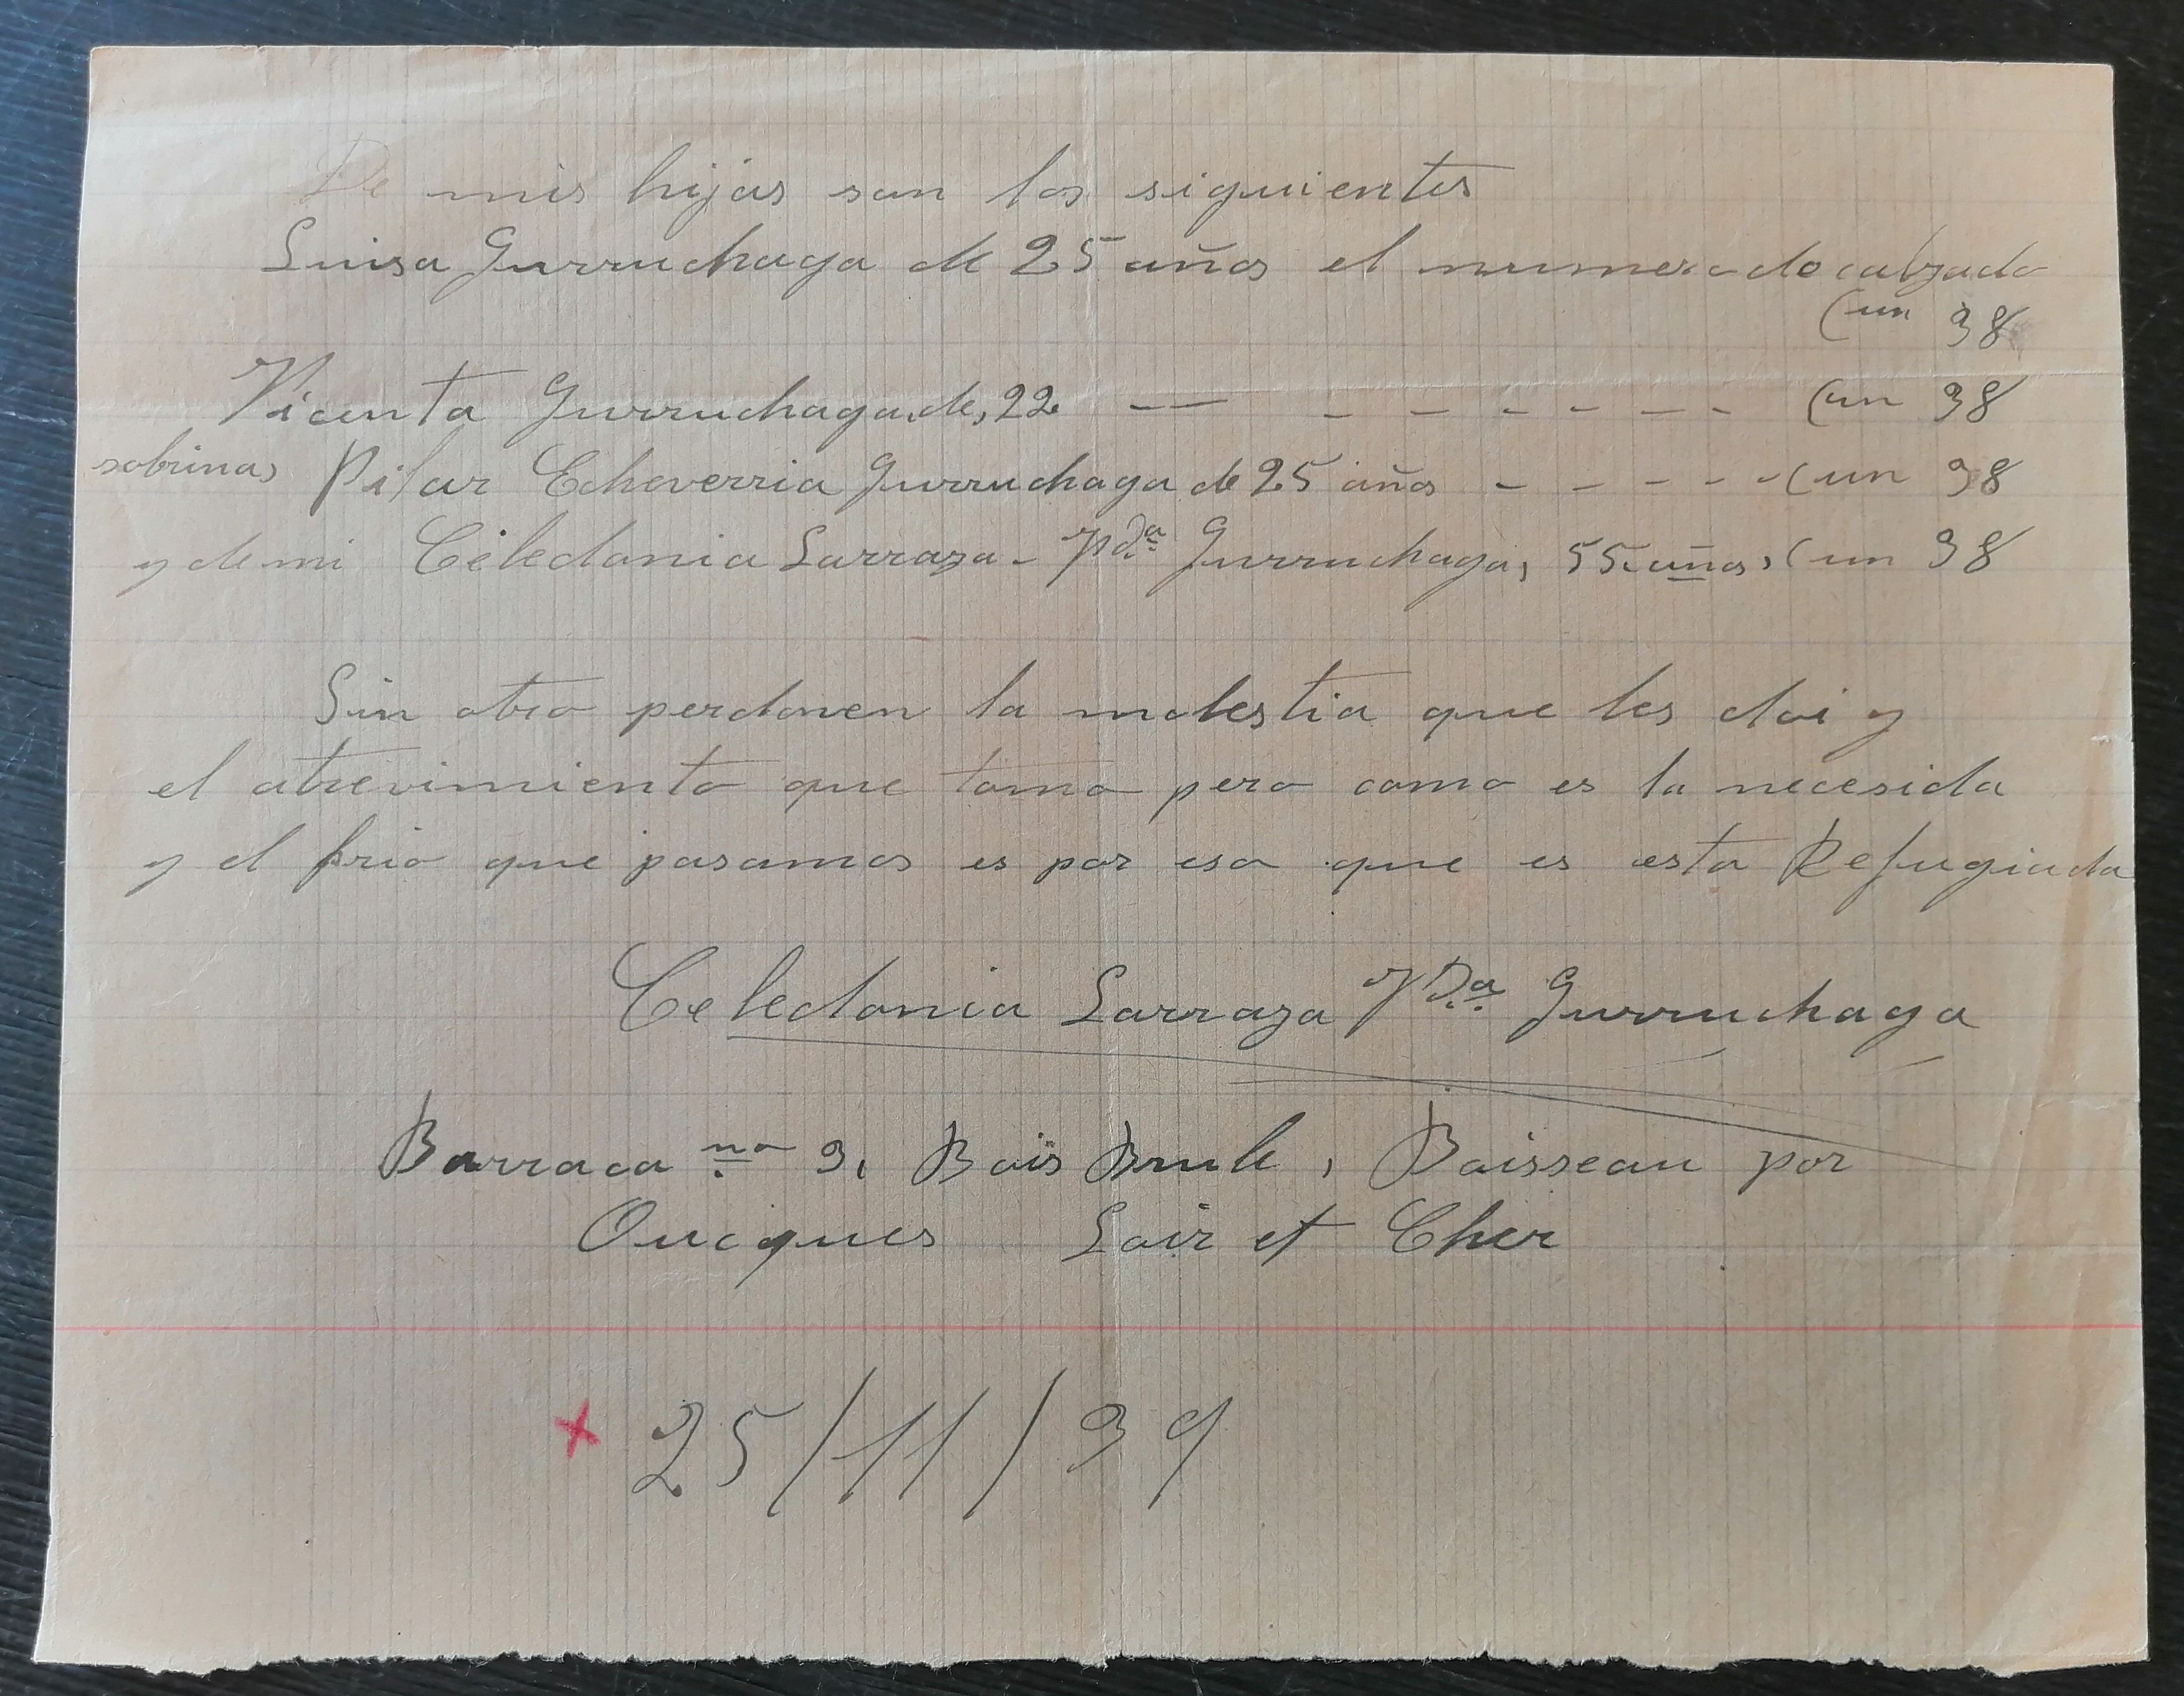 De mis hijas son los siguientes
Luisa Gurruchaga de 25 años el numero de calzado
(un 38
Vicenta Gurruchaga, de, 22 — - - - - - - - (un 38
sobrina, Pilar Echeverria Gurruchaga de 25 años - - - - - (un 38
y de mi Celedonia Larraza - Vda Gurruchaga, 55 años, (un 38
Sin otro perdonen la molestia que les doi y
el atrevimiento que tomo pero como es la necesida
y el frio que pasamos es por eso que es esta Refugiada
Celedonia Larraza Vda Gurruchaga
Barraca no 3, Bois Brule, Boisseau por
Oucques Loir et Cher
x 25/11/39